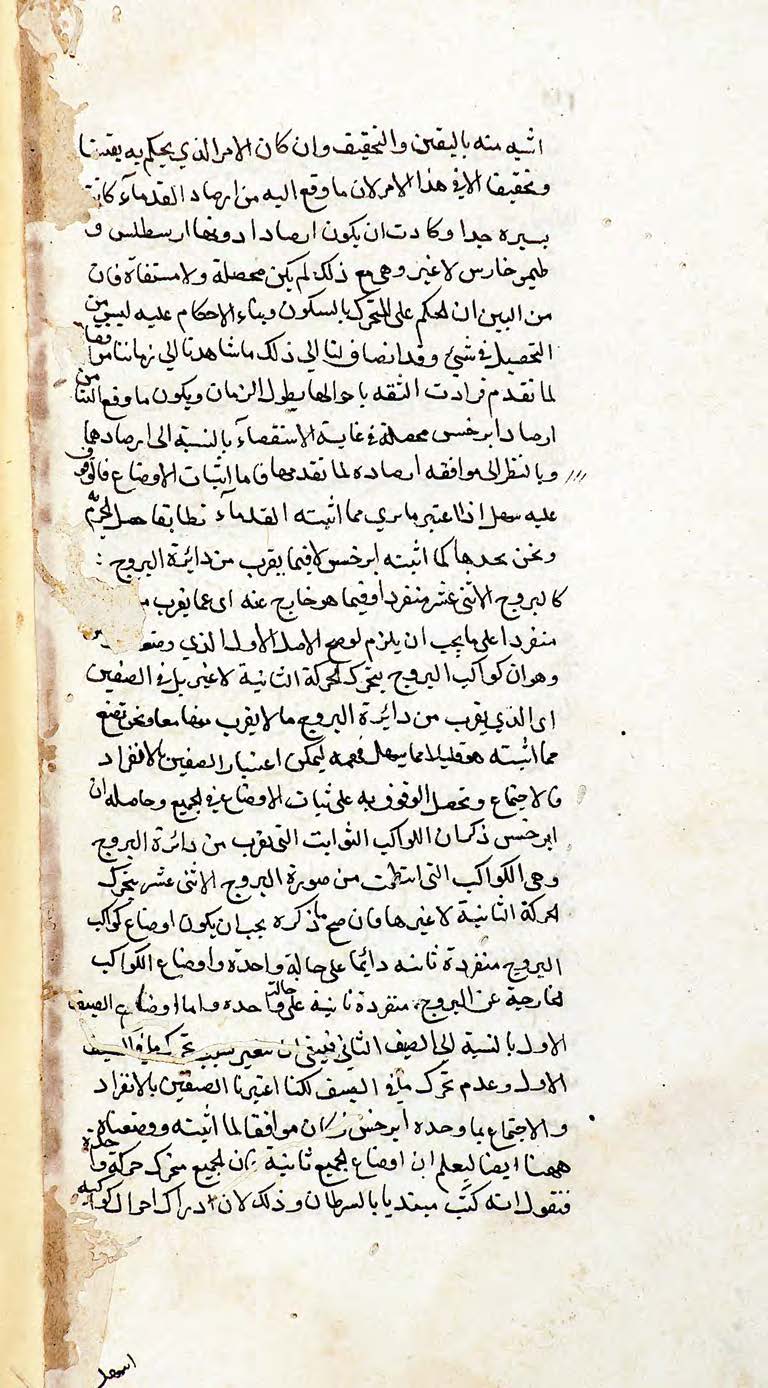 اشبه منه باليقين والتحقيق وان كان الامر الذي يحكم به يقينا
وتحقيقا الا في هذا الامر لان ما وقع اليه من ارصاد القدماء كانت
يسيرة جدا وكادت ان يكون ارصادا دونها ارسطلس و
طيموخارس لا غير وهي مع ذلك لم يكن محصلة ولا مستقاة فان
من البين ان الحكم على المتحرك بالسكون وبناء الاحكام عليه ليس من
التحصيل في شيء وقد انضاف لنا الى ذلك ما شاهدنا الى زماننا موافقا
لما تقدم فزادت الثقه باحوالها بطول الزمان ويكون ما وقع الينا من
ارصاد ابرخس محصلة في غاية الاستقصاء بالنسبة الى ارصادهما
وبالنظر الى موافقه ارصاده لما تقدمها فاما اثبات الاوضاع فالوقوف
عليه سهل اذا اعتبر ما نرى مما اثبته القدماء تطابقا هل
ونحن نجدها كما اثبته ابرخس لا فيما يقرب من دائرة البروج :
كالبروج الاثنى عشر منفردا وفيما هو خارج عنه اى عما يقرب
منفردا على ما يجب ان يلزم لوضح الاصل الاول الذي
وهو ان كواكب البروج يتحرك الحركة الثانية لا غير بل في الصنفين
اى الذي يقرب من دائرة البروج وما لا يقرب معا ونحن نضع
مما اثبته هو قليلا مما يسهل فهمه ليمكن اعتبار الصنفين بالانفراد
والاجتماع ويحصل الوقوف به على ثبات الاوضاع في الجميع وحاصله ان
ابرخس ذكر ان الكواكب الثوابت التى تقرب من دائرة البروج
وهى الكواكب التى انتظمت من صورة البروج الاثنى عشر يتحرك
الحركة الثانية لا غيرها فان صح ما ذكره يجب ان يكون اوضاع كواكب
البروج منفردة ثابته دائما على حالة واحدة واوضاع الكواكب
الخارجية عن البروج منفردة ثابتة على حالة واحده واما اوضاع الصنف
الاول بالنسبة الى الصنف الثاني فينبغى ان يتغير بسبب تحرك ما في الصنف
الاول وعدم تحرك ما في الصنف لكنا اعتبرنا الصنفين بالانفراد
والاجتماع بما وجده ابرخس وكان موافقا لما اثبته ووضعناه
ههنا ايضا ليعلم ان اوضاع الجميع ثابتة وان الجميع متحرك حركة واحدة
فنقول انه كتب مبتديا بالسرطان وذلك لان ادراك احوال كواكبه
اسهل